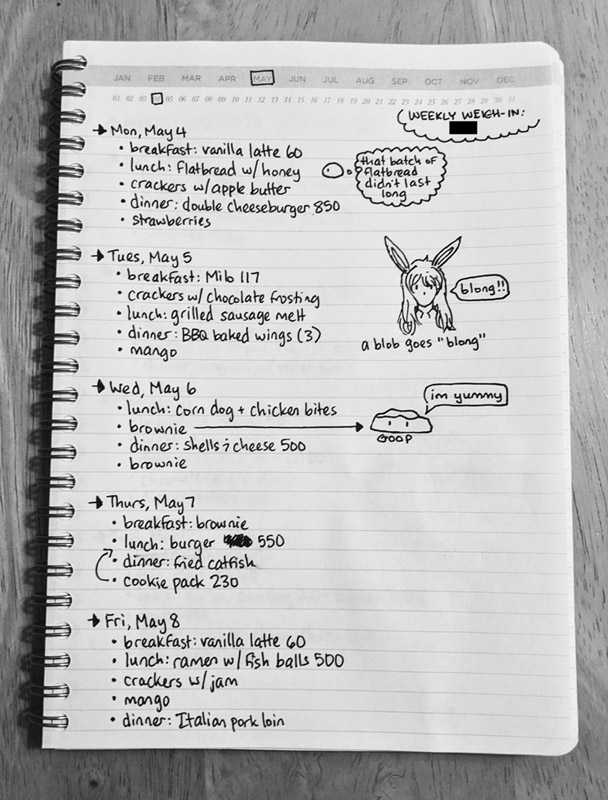 JAN FEB MAR APR MAY JUN JUL AUG SEP OCT NOV DEC
01 02 03 04 05 06 07 08 09 10 11 12 13 14 15 16 17 18 19 20 21 22 23 24 25 26 27 28 29 30 31
WEEKLY WEIGH-IN:
→ Mon, May 4
• breakfast: vanilla latte 60
• lunch: flatbread w/ honey
• crackers w/ apple butter
• dinner: double cheeseburger 850
• strawberries
that batch of
flatbread
didn't last
long
→ Tues, May 5
• breakfast: Milo 117
• crackers w/ chocolate frosting
• lunch: grilled sausage melt
• dinner: BBQ baked wings (3)
• mango
blong!!
a blob goes "blong"
→ Wed, May 6
• lunch: corn dog + chicken bites
• brownie
• dinner: shells & cheese 500
• brownie
im yummy
GOOP
→ Thurs, May 7
• breakfast: brownie
• lunch: burger 550
• dinner: fried catfish
• cookie pack 230
→ Fri, May 8
• breakfast: vanilla latte 60
• lunch: ramen w/ fish balls 500
• crackers w/ jam
• mango
• dinner: Italian pork loin